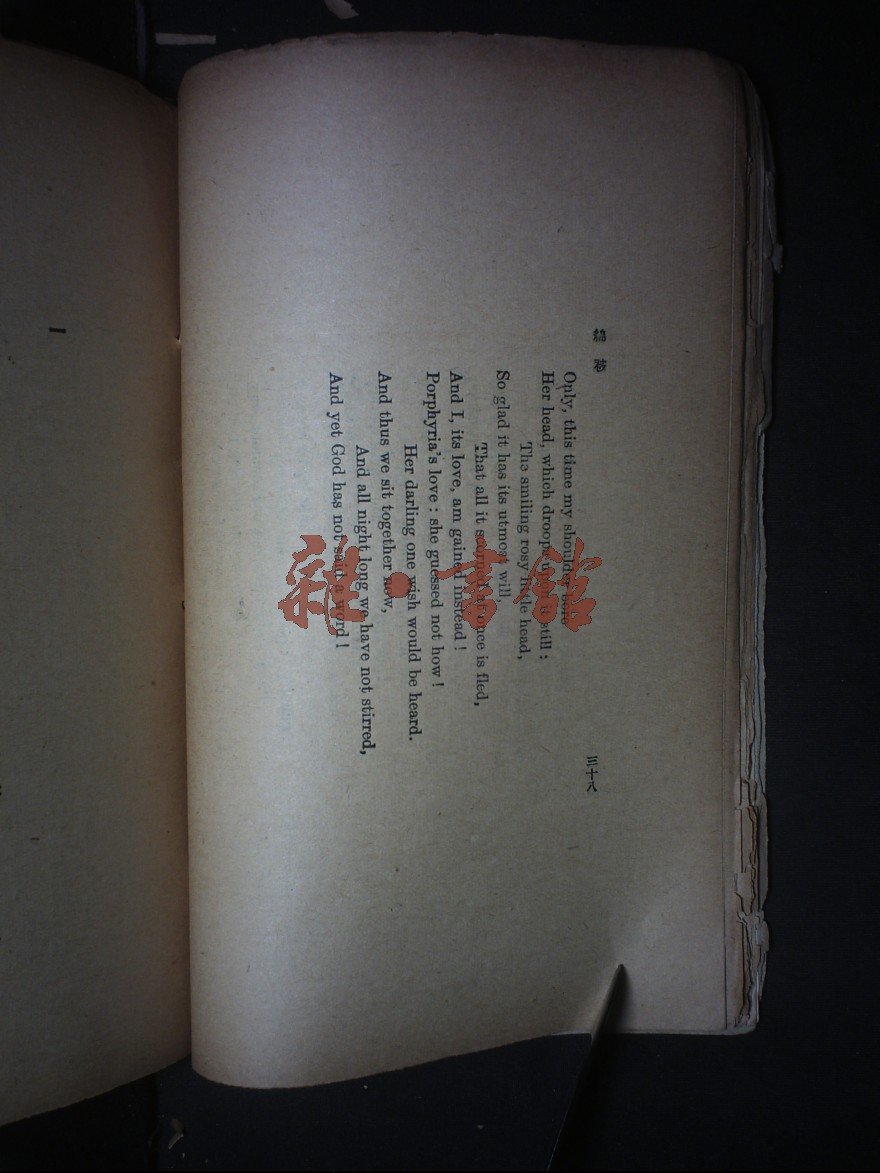 三十八
Only, this time my shoulder bore
Her head, which droops upon it still :
The smiling rosy little head,
So glad it has its utmost will
That all it scorned at once is fled,
And I, its love, am gained instead !
Porphyria's love : she guessed not how !
Her darling one wish would be heard.
And thus we sit together now,
And all night long we have not stirred,
And yet God has not said a word !